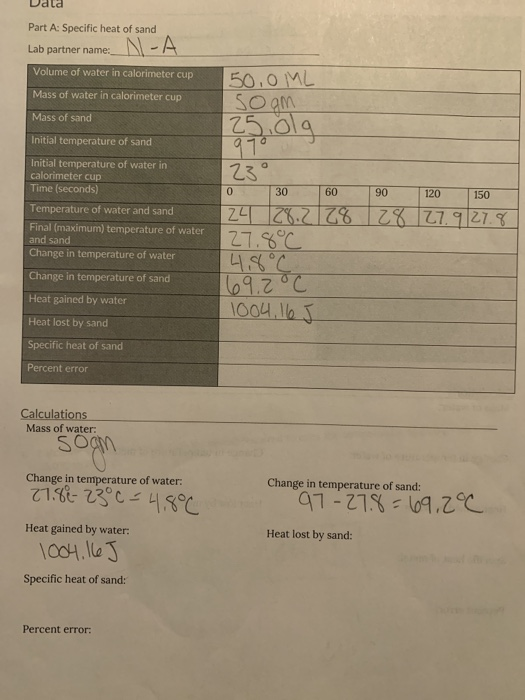 Data
Part A: Specific heat of sand
Lab partner name: N-A
Volume of water in calorimeter cup 50.0 ML
Mass of water in calorimeter cup 50gm
Mass of sand 25.01g
Initial temperature of sand 97°
Initial temperature of water in calorimeter cup 23°
Time (seconds) 0 30 60 90 120 150
Temperature of water and sand 24 28.2 28 28 27.9 27.8
Final (maximum) temperature of water and sand 27.8°C
Change in temperature of water 4.8°C
Change in temperature of sand 69.2°C
Heat gained by water 1004.16 J
Heat lost by sand
Specific heat of sand
Percent error
Calculations
Mass of water:
50gm
Change in temperature of water: Change in temperature of sand:
27.8°- 23°C = 4.8°C 97 - 27.8 = 69.2°C
Heat gained by water: Heat lost by sand:
1004.16 J
Specific heat of sand:
Percent error: